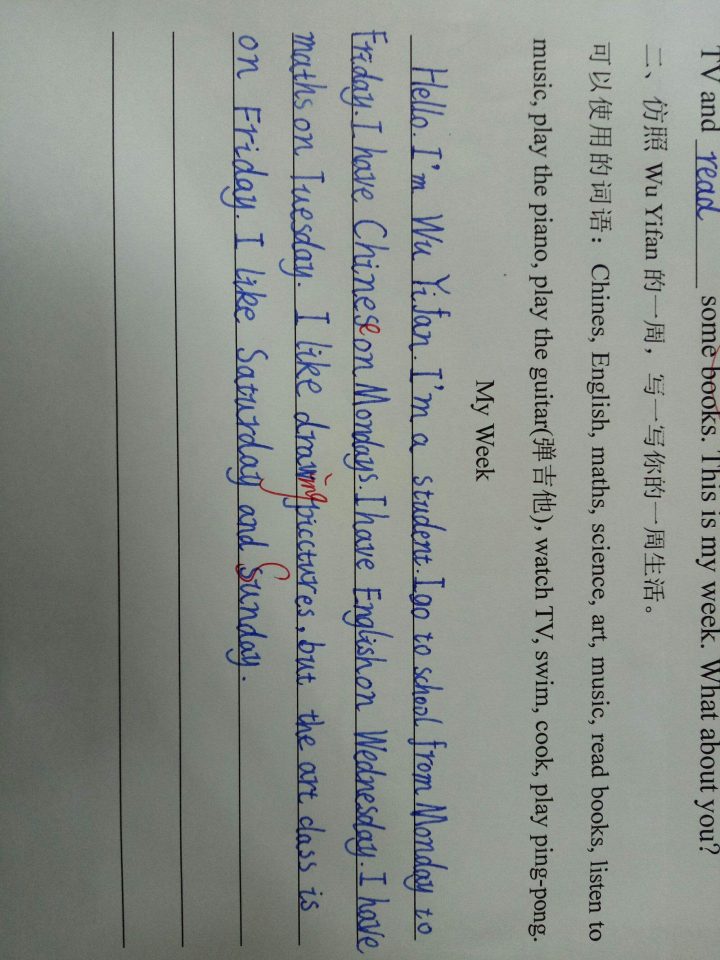 TV and read some books. This is my week. What about you?
二、仿照 Wu Yifan 的一周，写一写你的一周生活。
可以使用的词语： Chines, English, maths, science, art, music, read books, listen to
music, play the piano, play the guitar(弹吉他), watch TV, swim, cook, play ping-pong.
My Week
Hello. I'm Wu Yifan. I'm a student. I go to school from Monday to
Friday. I have Chinese on Mondays. I have English on Wednesday. I have
maths on Tuesday. I like drawing picctures, but the art class is
on Friday. I like Saturday and Sunday.